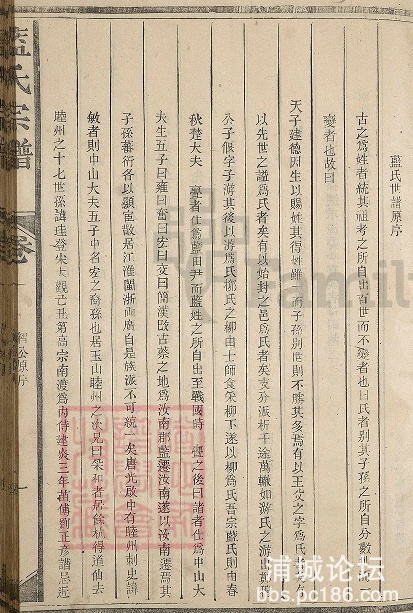 藍氏世譜原序
古之爲姓者統其祖考之所自出百世而不變者也曰氏者別其子孫之所自分數世
變者也故曰
天子建德因生以賜姓其得姓雖一而子孫別世則不勝其多焉有以王父之字爲氏者
以先世之諡爲氏者矣有以始封之邑爲氏者矣支分派析千途萬轍如游氏之游出
公子偃字子游其後以游爲氏柳氏之柳由士師食采柳下遂以柳爲氏吾宗藍氏則由春
秋楚大夫 亹者仕爲藍田尹而藍姓之所自出至戰國時 亹之後曰諸者仕爲中山大
夫生五子曰雍曰奮曰宏曰文曰簡漢改古蔡之地爲汝南郡藍遷汝南遂以汝南爲其
子孫蕃衍各以顯宦散居江淮閩浙兩廣自是族派不可統一矣唐光啟中有睦州刺史諱
敏者則中山大夫五子中名宏之裔孫也居玉山睦州之次兄曰采和者居餘杭得道仙去
睦州之十七世孫諱奎登宋大觀己丑第高宗南渡爲內侍建炎三年苗傅劉正彥謀
藍氏宗譜
卷
原序
一
浦城论坛
bbs.pc186.com